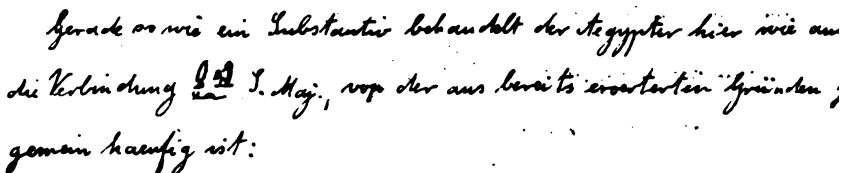 Gerade so wie ein Substantiv behandelt der Aegypter hier wie
die Verbindung S. Maj., von der aus bereits eroerterten Gründen
gemein haeufig ist: